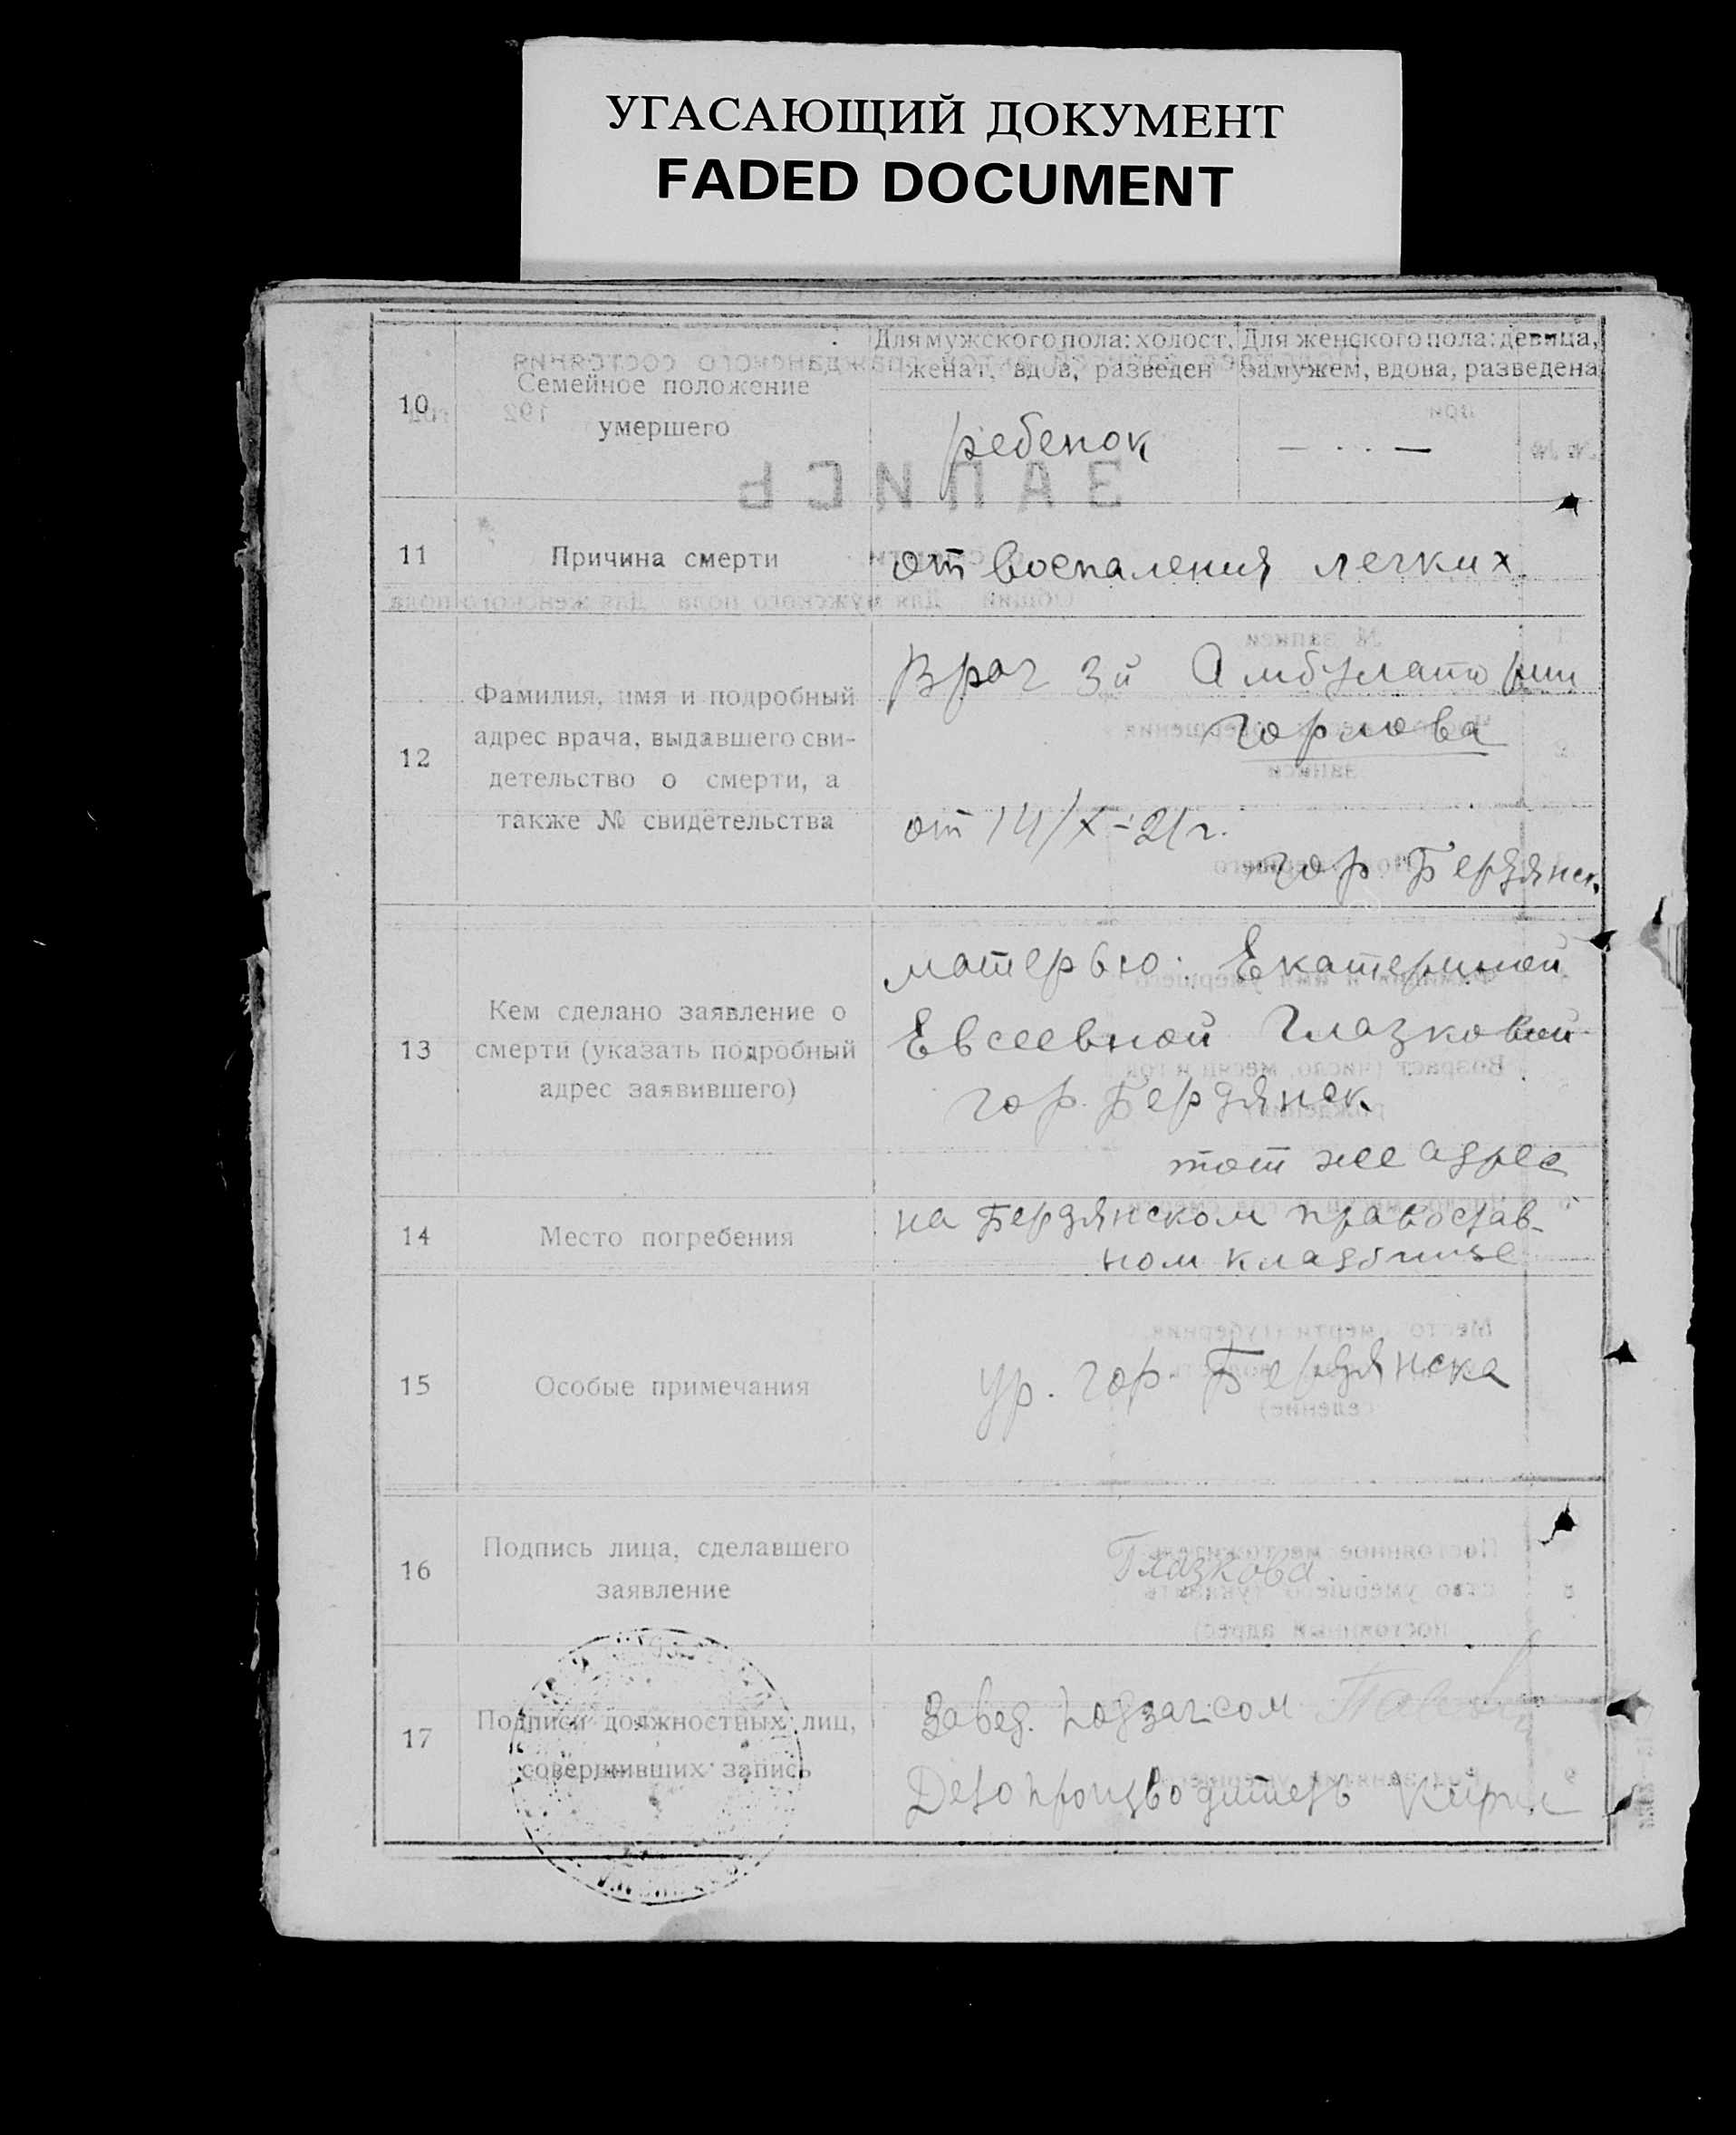 УГАСАЮЩИЙ ДОКУМЕНТ
FADED DOCUMENT
Для мужского пола: холост, женат, вдов, разведен
Для женского пола: девица, замужем, вдова, разведена
10
Семейное положение
умершего
ребенок
— . . —
11
Причина смерти
от воспаления легких
12
Фамилия, имя и подробный
адрес врача, выдавшего сви-
детельство о смерти, а
также № свидетельства
Врач 3й Амбулатории
Горлова
от 14/X-21г.
гор. Бердянск
13
Кем сделано заявление о
смерти (указать подробный
адрес заявившего)
матерью Екатериной
Евсеевной Глазковой
гор. Бердянск
тот же адрес
14
Место погребения
на Бердянском православ-
ном кладбище
15
Особые примечания
ур. гор. Бердянска
16
Подпись лица, сделавшего
заявление
Глазкова
17
Подписи должностных лиц,
совершивших запись
Завед. подзагсом
Делопроизводитель
ЗАПИСЬ